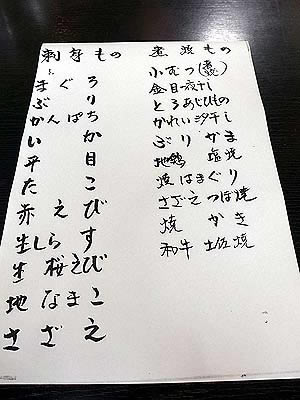 刺身もの
まぐろ
ぶり
かんぱち
いか
平目
たこ
赤えび
生しらす
生桜えび
地なまこ
さざえ
煮焼もの
小むつ
金目一夜干し
とろあじひもの
かれい汐干し
ぶりかま
地鶏 塩焼
焼はまぐり
さざえつぼ焼
焼かき
和牛 土佐焼